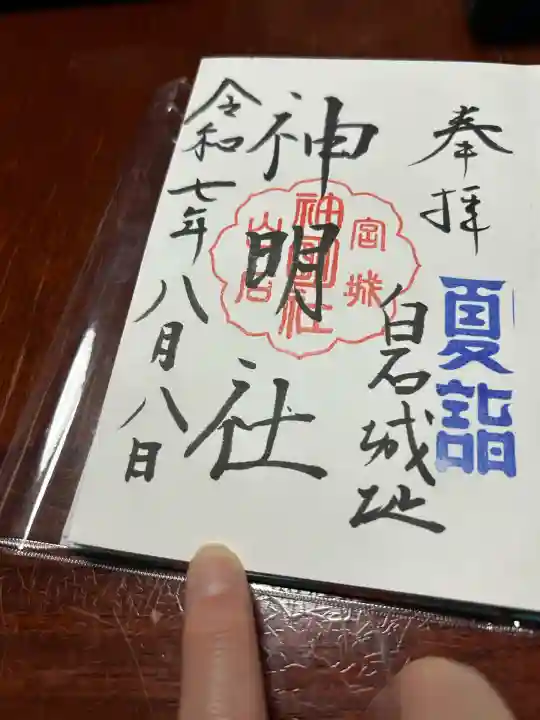 奉拝
夏詣
白石城址
神明社
宮城
神明社
白石
令和七年八月八日